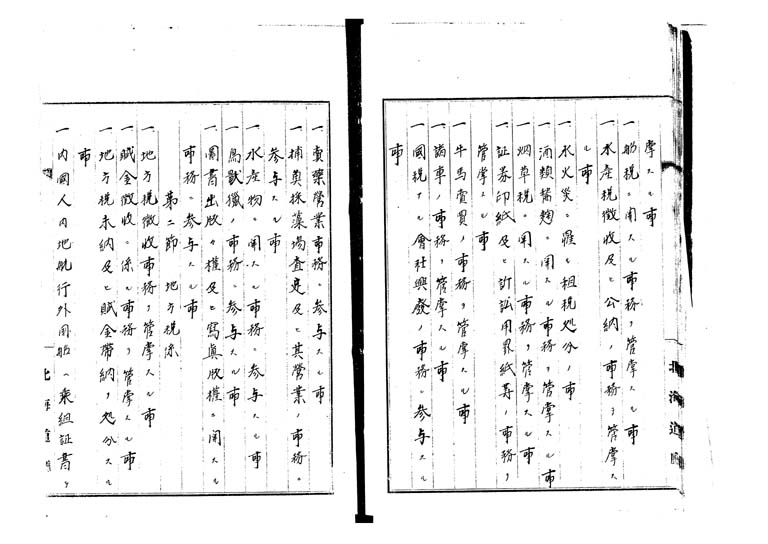 掌スル事
一 船税ニ関スル事務ヲ管掌スル事
一 水産税徴収及ヒ公納ノ事務ヲ管掌ス
ル事
一 水火災ニ罹ル租税処分ノ事
一 酒類醤麹ニ関スル事務ヲ管掌スル事
一 烟草税ニ関スル事務ヲ管掌スル事
一 証券印紙及ヒ訴訟用罫紙等ノ事務ヲ
管掌スル事
一 牛馬売買ノ事務ヲ管掌スル事
一 諸車ノ事務ヲ管掌スル事
一 国税ナル会社興廃ノ事務ニ参与スル
事
北海道庁
一 売薬営業事務ニ参与スル事
一 捕魚採藻場査定及ヒ其営業ノ事務ニ
参与スル事
一 水産物ニ関スル事務ニ参与スル事
一 鳥獣猟ノ事務ニ参与スル事
一 図書出版々権及ヒ写真版権ニ関スル
事務ニ参与スル事
第二節 地方税係
一 地方税徴収事務ヲ管掌スル事
一 賦金徴収ニ係ル事務ヲ管掌スル事
一 地方税未納及ヒ賦金帯納ヲ処分スル
事
一 内国人内地航行外国船ヘ乗組証書ヲ
北海道庁